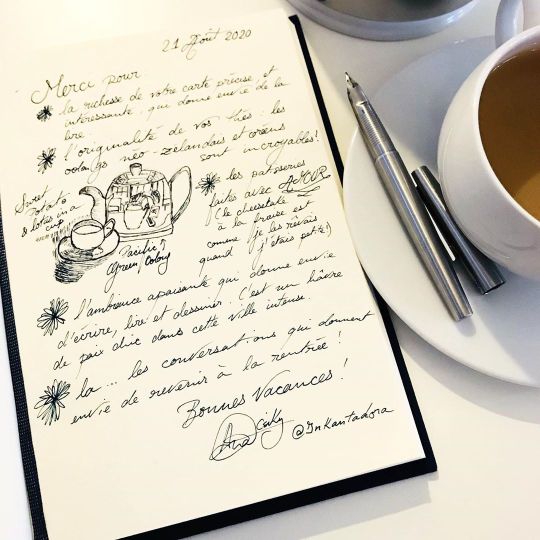 21 Août 2020
Merci pour:
la richesse de votre carte précise, et
intéressante, qui donne envie de la
lire.
l'originalité de vos thés : les
oolongs néo-zélandais et coréens
sont incroyables!
Sweet
Potato
& lotus in a
cup
Pacific
Green Oolong
les patisseries
faites avec AMOUR
(le cheesecake
à la braise est
comme je les rêvais
quand j'étais petite!)
l'ambiance apaisante qui donne envie
d'écrire, lire et dessiner. C'est un hâvre
de paix chic dans cette ville intense.
la ... les conversations qui donnent
envie de revenir à la rentrée!
Bonnes Vacances!
Ana
@Inkantadora